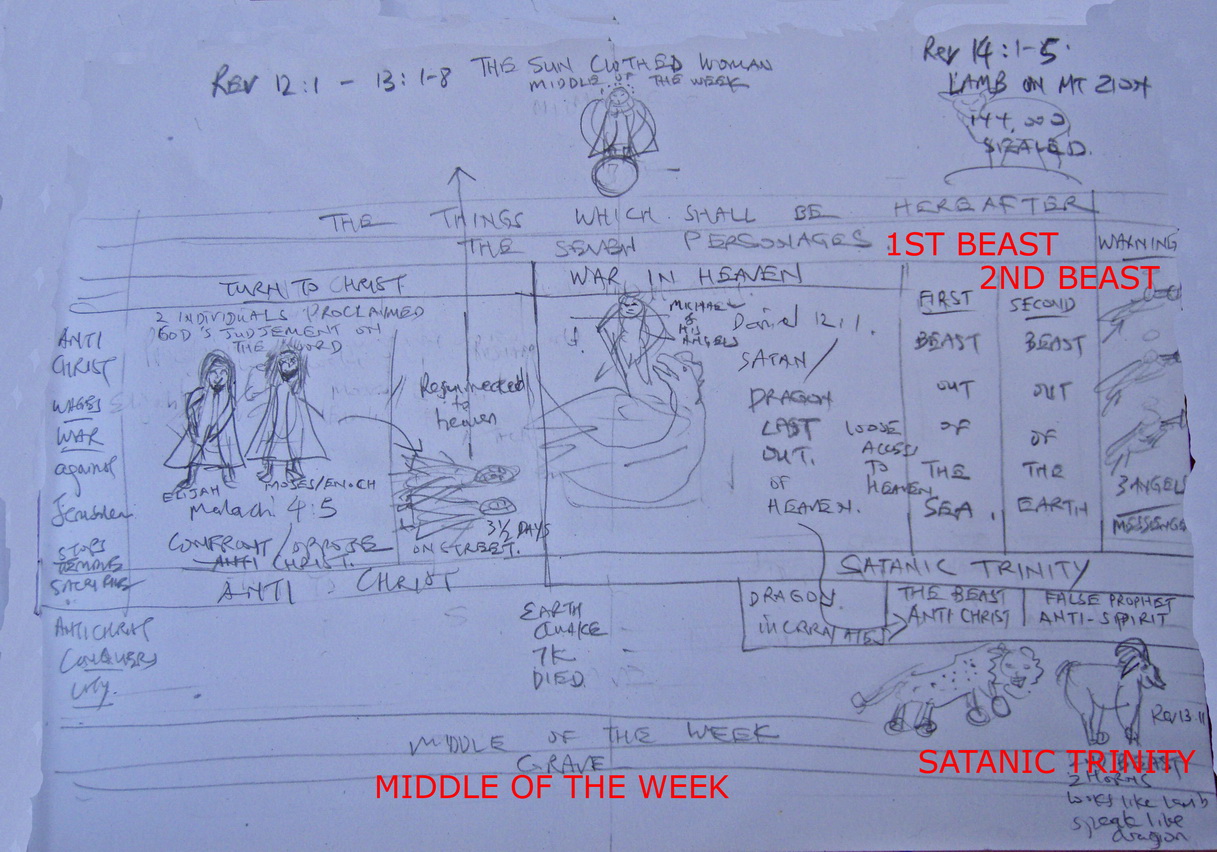 REV 12:1 - 13:1-8
THE SUN CLOTHED WOMAN
MIDDLE OF THE WEEK
Rev 14:1-5.
LAMB ON MT ZION
144,000
SEALED.
THE THINGS WHICH SHALL BE HEREAFTER
THE SEVEN PERSONAGES
1ST BEAST
2ND BEAST
WARNING
TURN TO CHRIST
WAR IN HEAVEN
2 INDIVIDUALS PROCLAIMED
GOD'S JUDGEMENT ON
THE WORD
ANTI
CHRIST
WAGES
WAR
against
Jerusalem
STOPS
TEMPLE
SACRIFICE
ELIJAH
MOSES/ENOCH
Malachi 4:5
CONFRONT/OPPOSE
ANTI CHRIST.
Resurrected
to
heaven
3½ DAYS
ON STREET.
MICHAEL
&
HIS
ANGELS
Daniel 12:1.
SATAN/
DRAGON
CAST
OUT.
OF
HEAVEN.
LOOSE
ACCESS
TO
HEAVEN
FIRST
BEAST
OUT
OF
THE
SEA.
SECOND
BEAST
OUT
OF
THE
EARTH
3 ANGELS
ANTI CHRIST
SATANIC TRINITY
ANTICHRIST
CONQUERS
City.
EARTH
QUAKE
7K
DIED.
DRAGON
THE BEAST
ANTI CHRIST
FALSE PROPHET
ANTI-SPIRIT
Rev 13:11
MIDDLE OF THE WEEK
GRAVE
MIDDLE OF THE WEEK
SATANIC TRINITY
2 HORNS
looks like lamb
speak like
dragon